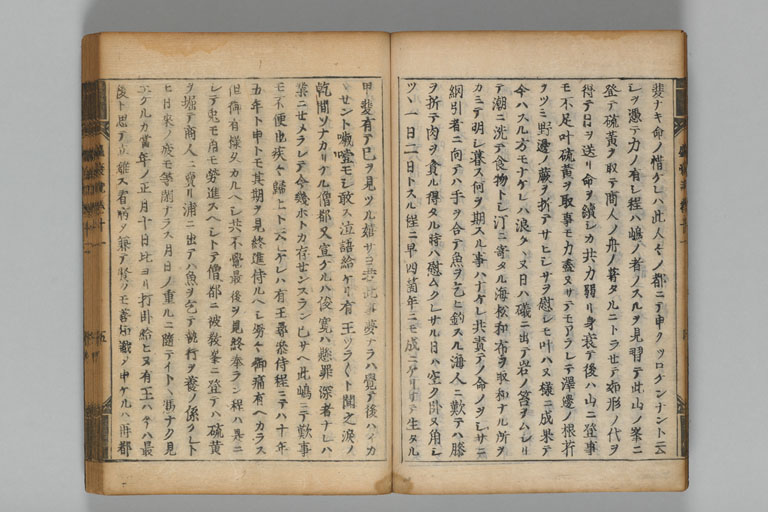 斐ナキ命ノ惜ケレハ此人々ノ都ニテ申クツロケンナント云
シヲ憑テ力ノ有シ程ハ嶋ノ者ノスルヲ見習テ此山ノ峯ニ
登テ硫黄ヲ取テ商人ノ舟ノ着タルニトラセテ如形ノ代ヲ
得テ日ヲ送リ命ヲ續シカ共力弱リ身衰テ後ハ山ニ登事
モ不足叶硫黄ヲ取事モ力盡ヌサテモアラレテ澤邊ノ根芹
ヲツミ野邊ノ蕨ヲ折テサヒシサヲ慰シモ叶ハヌ様ニ成果テ
今ハスル方モナケレハ浪タヽヌ日ハ磯ニ出テ岩ノ苔ヲムシリ
テ潮ニ洗テ食物トシ汀ニ寄タル海松和布ヲ取和ナル所ヲ
カミテ明シ暮ス何ヲ期スル事ハナケレ共責テノ命ノヲシサニ
網引者ニ向テハ手ヲ合テ魚ヲ乞ヒ釣スル海人ニ歎テハ膝
ヲ折テ肉ヲ貪ル得タル時ハ慰ムクレサル日ハ空ク臥ヌ角シ
ツヽ一日二日トスル程ニ早四箇年ニモ成ニケリサテ生タル
甲斐有テ己ヲ見ツル嬉サヨ若此事夢ナラハ覺テ後ハイカ
ヽセント モシ敢ス泣語給ケリ有王ツラ〳〵ト聞之涙ノ
乾間ソナカリケル僧都又宣ケルハ俊寛ハ懸罪深者ナレハ
業ニセメラレテ今幾ホトカ存センスラン己サヘ此嶋ニテ歎事
モ不便也疾々歸ヒト ケレハ有王尋參侍程ニテハ十年
五年ト申トモ其期ヲ見終進侍ルヘシ努々御痛有ヘカラス
但御有様久カルヘシ共不覺最後ヲ見終參ラン程ハ是ニ
シテ兎モ角モ勞進スヘシトテ僧都ニ被敎峯ニ登テハ硫黄
ヲ堀テ商人ニ賣リ浦ニ出テハ魚ヲ乞テ執行ヲ養 係クレト
ヒ日來ノ疲モ等閑ナラス月日ノ重ルニ隨テイトヽ憑ナク見
エケルカ當年ノ正月十日比ヨリ打臥給ヒヌ有王ハ今ハ最
後ト思テ立離ス看病 テ モ善知識 申ケルハ再都